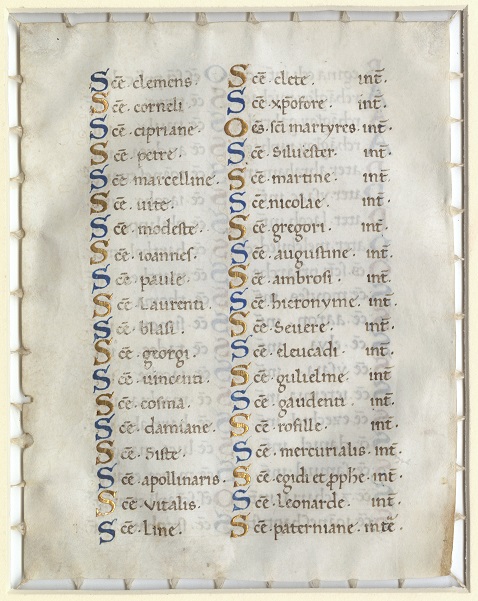 Scē · clemens ·
Scē · corneli ·
Scē · cipriane ·
Scē · petre ·
Scē · marcelline ·
Scē · uite ·
Scē · modeste ·
Scē · ioannes ·
Scē · paule ·
Scē · Laurenti ·
Scē · blasi ·
Scē · georgi ·
Scē · uincenti ·
Scē · cosma ·
Scē · damiane ·
Scē · Siste ·
Scē · apollinaris ·
Scē · vitalis ·
Scē · Line ·
Scē · clete · int̄ ·
Scē · xp̄ofore · int̄ ·
Oēs · sc̄i martyres · int̄ ·
Scē · Siluester · int̄ ·
Scē · martine · int̄ ·
Scē nicolae · int̄ ·
Scē · gregori · int̄ ·
Scē · augustine · int̄ ·
Scē · ambrosi · int̄ ·
Scē · hieronyme · int̄ ·
Scē · Seuere · int̄ ·
Scē · eleucadi · int̄ ·
Scē · gulielme · int̄ ·
Scē · gaudenti · int̄ ·
Scē · rofille · int̄ ·
Scē · mercurialis · int̄ ·
Scē · egidi et pp̄he · int̄ ·
Scē · Leonarde · int̄ ·
Scē · paterniane · int̄e ·